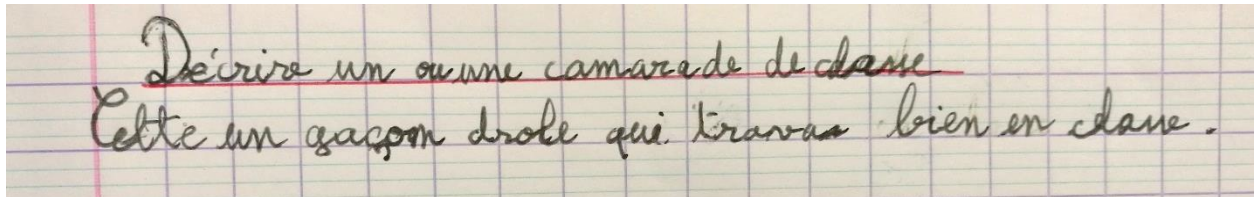 Décrire un ou une camarade de classe
Cette un gaçon drole qui trava bien en classe.